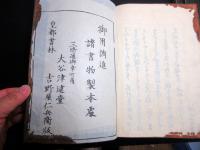 御用御造
諸書物製本處
三條通御幸町角
大谷津逮堂
皇都書林
吉野屋仁兵衛版